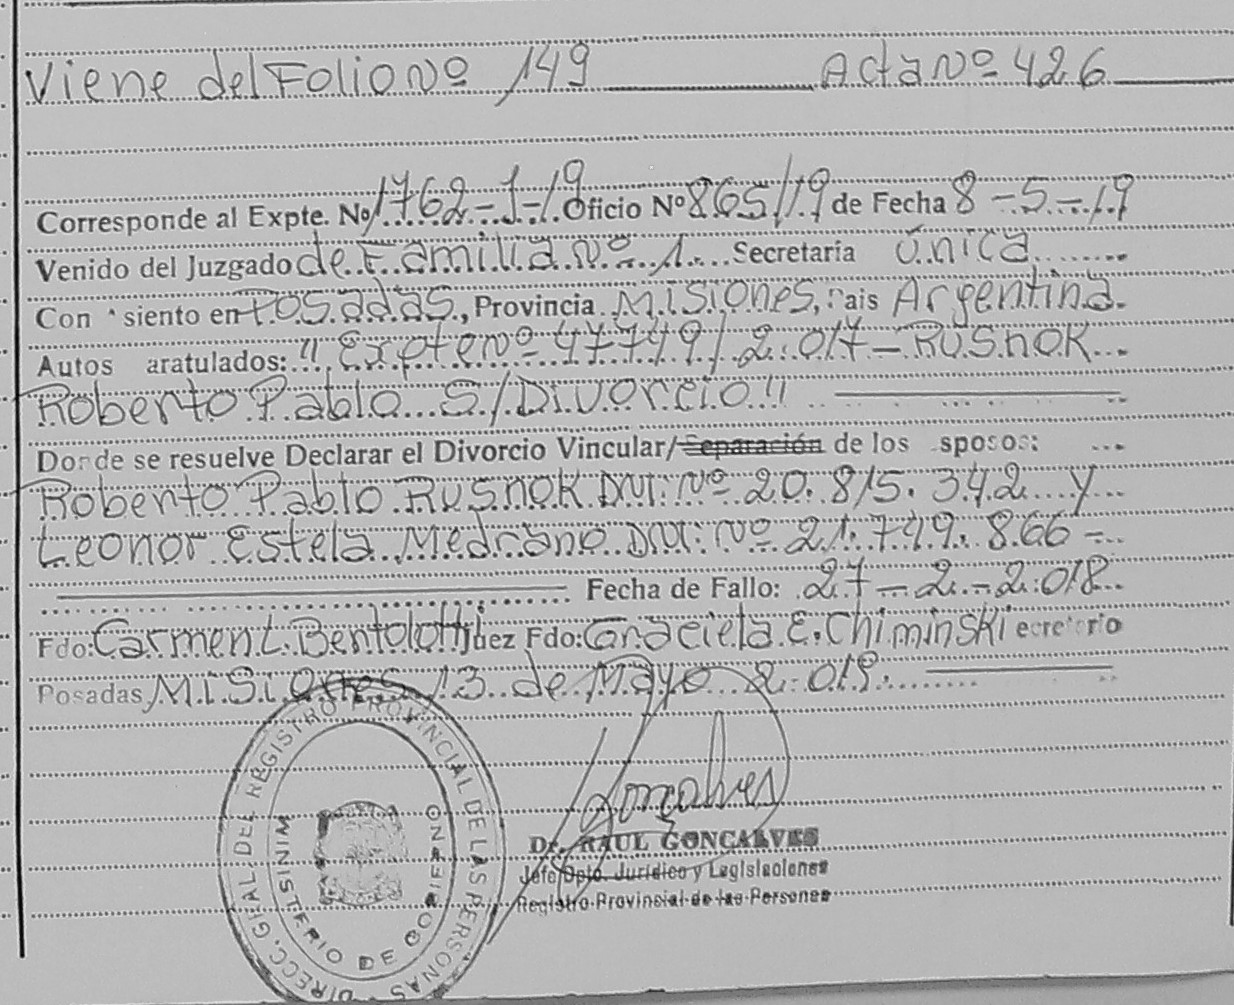 Viene del Folio Nº 149 Acta Nº 426
Corresponde al Expte. Nº 1762-J-19 Oficio Nº 865/19 de Fecha 8-5-19
Venido del Juzgado de Familia Nº 1 Secretaría Única
Con siento en Posadas, Provincia Misiones, Pais Argentina.
Autos aratulados: "Expte Nº 47749/2.017 - RUSNOK
Roberto Pablo S/Divorcio"
Donde se resuelve Declarar el Divorcio Vincular/Separación de los sposos:
Roberto Pablo RUSNOK DNI: Nº 20.815.342 y
Leonor Estela Medrano DNI: Nº 21.749.866 -
Fecha de Fallo: 27-2-2.018.
Fdo: Carmen L. Bentolotti Juez Fdo: Graciela E. Chiminski ecretario
Posadas, Misiones, 13 de Mayo 2.019.
DIRECC. GRAL DEL REGISTRO PROVINCIAL DE LAS PERSONAS
MINISTERIO DE GOBIERNO
Gonçalves
Dr. RAUL GONCALVES
Jefe Dpto. Jurídico y Legislaciones
Registro Provincial de las Personas